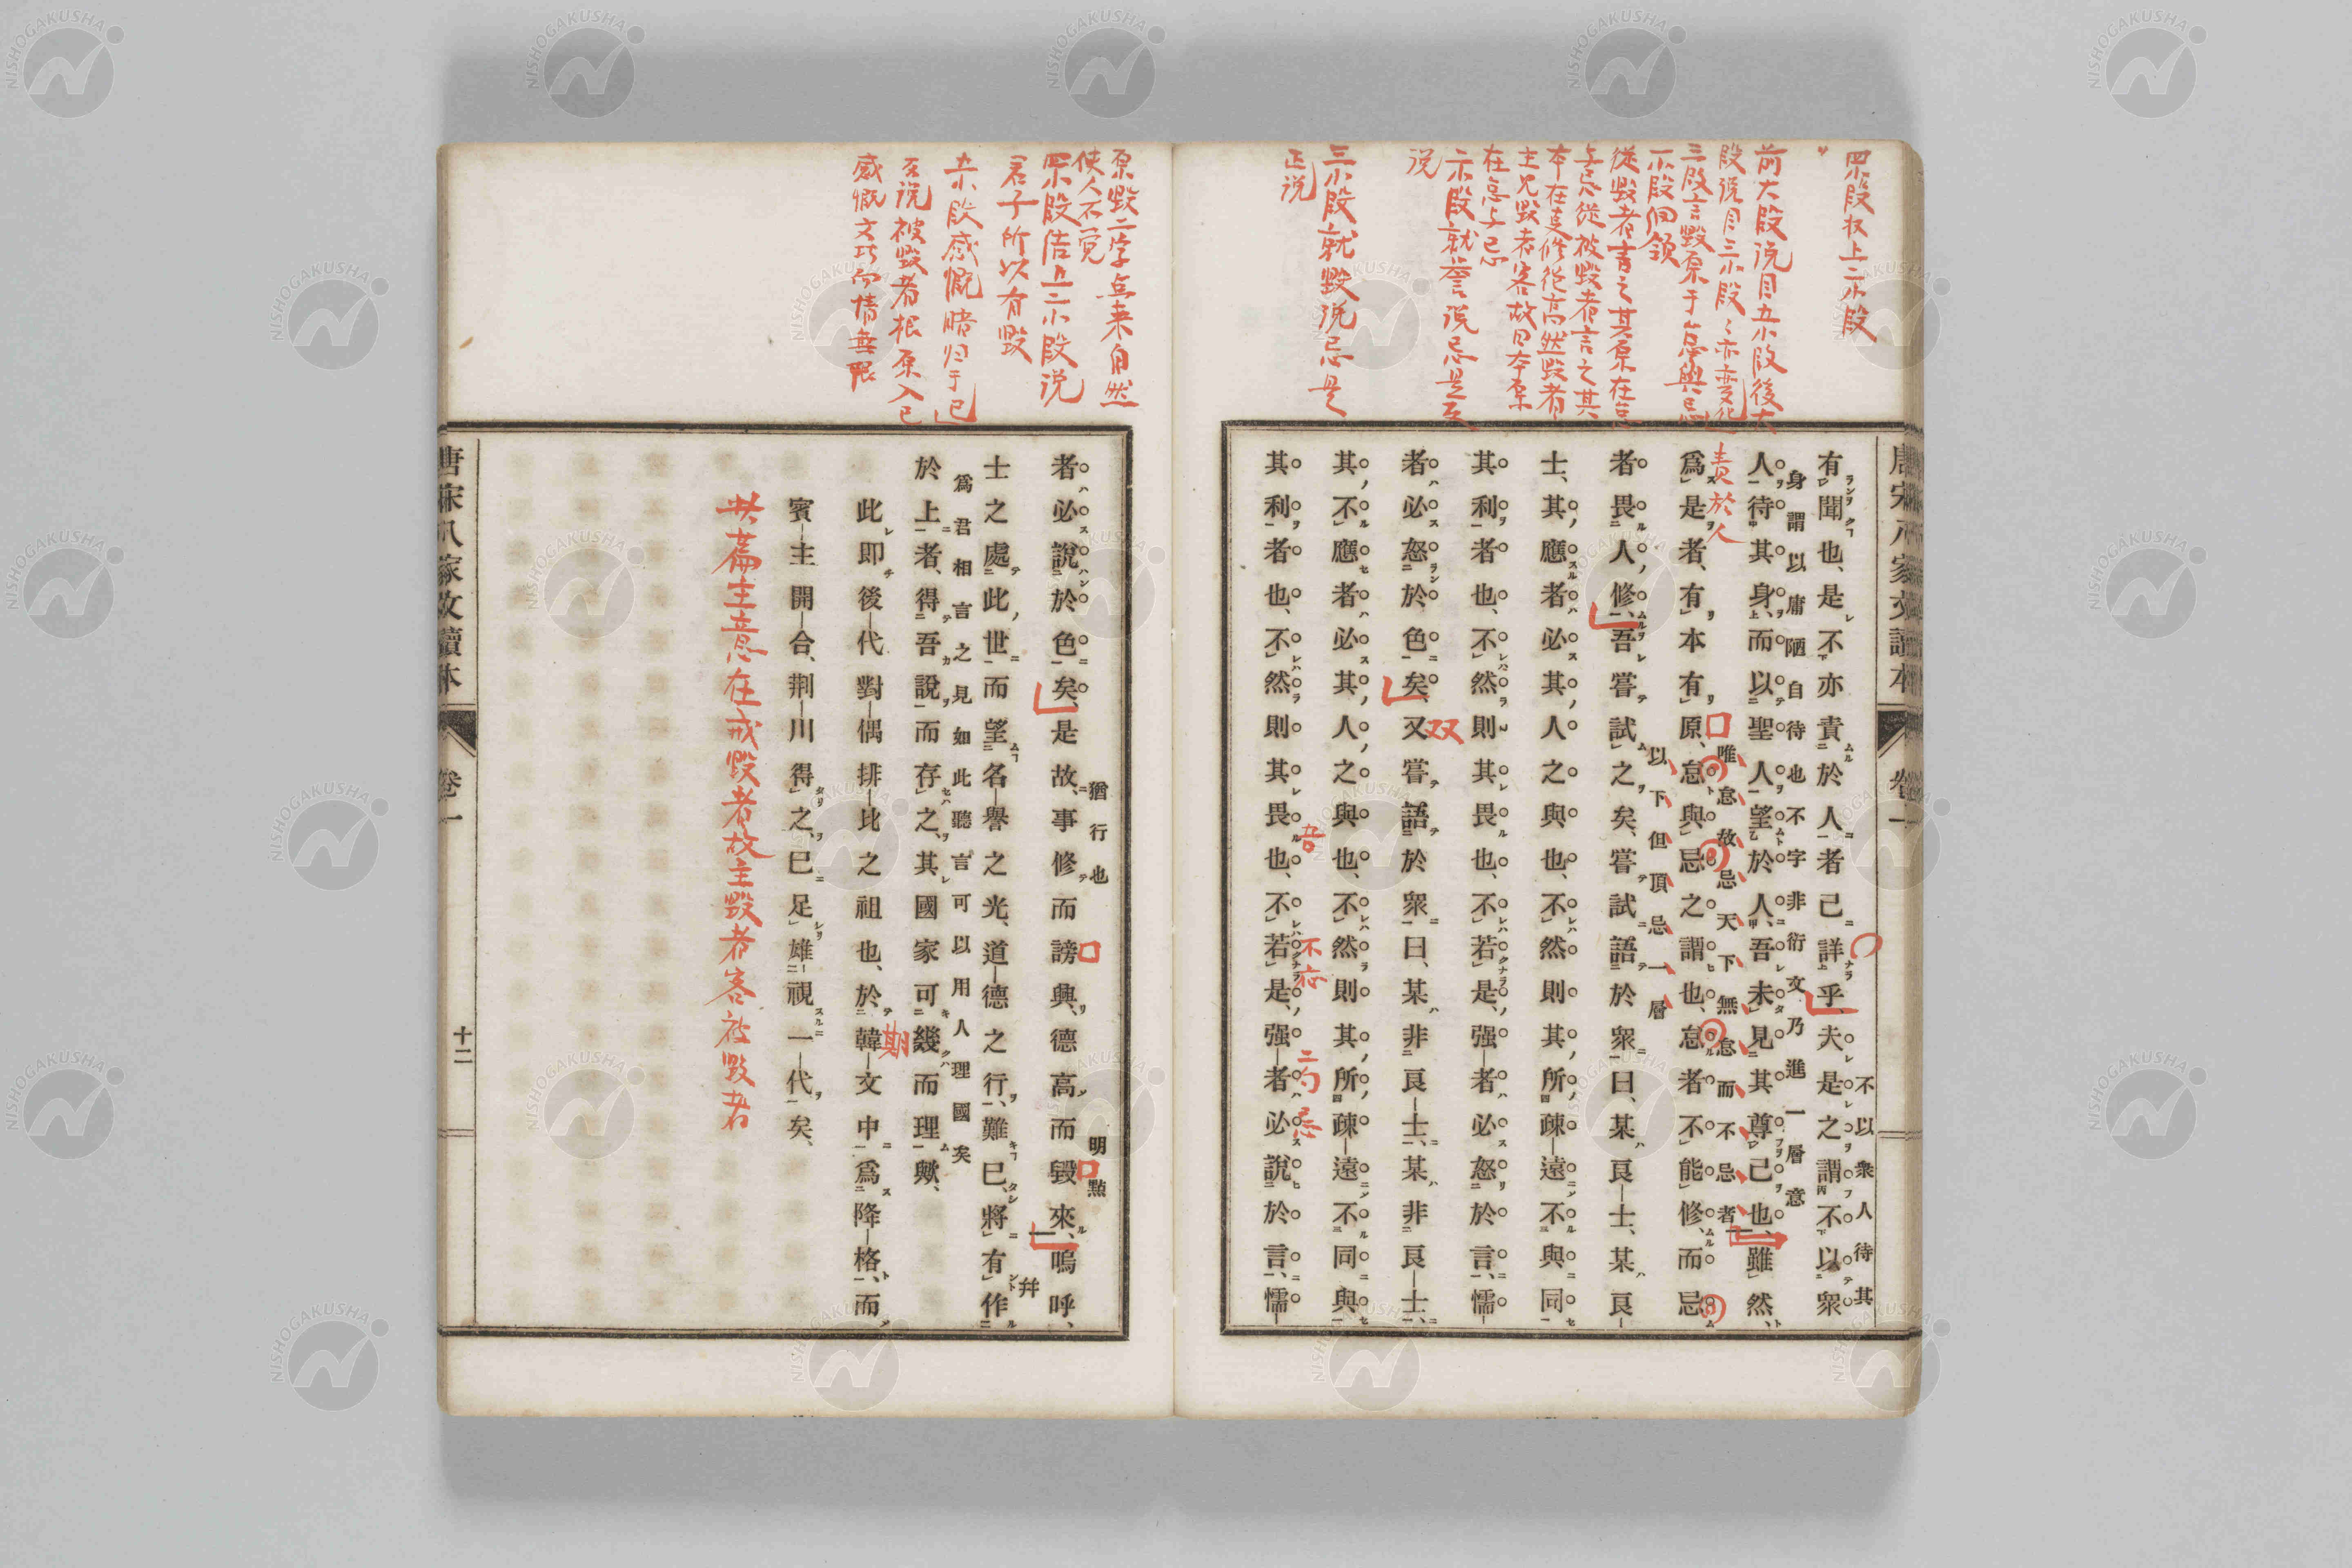 四小段収上二小段
前大段説目五小段後大
段説目三小段々亦変化
三段言毀原于怠與忌
一小段回領
從毀者言之其原在怠
与忌從被毀者言之其
本在事修德高然毀者
主兄毀者客故曰本原
在怠与忌
二小段就誉説忌是反
説
三小段就毀説忌是
正説
唐宋八家文讀本
卷一
不以衆人待其
有聞也、是不亦責於人者已詳乎、夫是之謂不以衆
身謂以庸陋自待也不字非衍文乃進一層意
人待其身、而以聖人望於人、吾未見其尊己也、雖然、
責於人
唯怠故忌天下無怠而不忌者
爲是者、有本有原、怠與忌之謂也、怠者不能修、而忌
以下但頂忌一層
者畏人修、吾嘗試之矣、嘗試語於衆曰、某良士、某良
士、其應者必其人之與也、不然則其所疎遠不與同
其利者也、不然則其畏也、不若是、强者必怒於言、懦
者必怒於色矣、又嘗語於衆曰、某非良士、某非良士、
双
其不應者必其人之與也、不然則其所疎遠不同與
其利者也、不然則其畏也、不若是、强者必說於言、懦
原毀二字点来自然
使人不覚
四小段結上二小段説
君子所以有毀
五小段感慨暗归于已
至説被毀者根原入已
感慨文巧而情無限
猶行也
明點
者必說於色矣、是故、事修而謗興、德高而毀來、嗚呼、
幷
士之處此世而望名譽之光、道德之行、難已、將有作
爲君相言之見如此聽言可以用人理國矣
於上者、得吾說而存之、其國家可幾而理歟、
期
此即後代對偶排比之祖也、於韓文中爲降格、而
賓主開合、荆川得之、已足雄視一代矣、
此篇主意在戒毀者故主毀者客被毀者
唐宋八家文讀本
卷一
十二